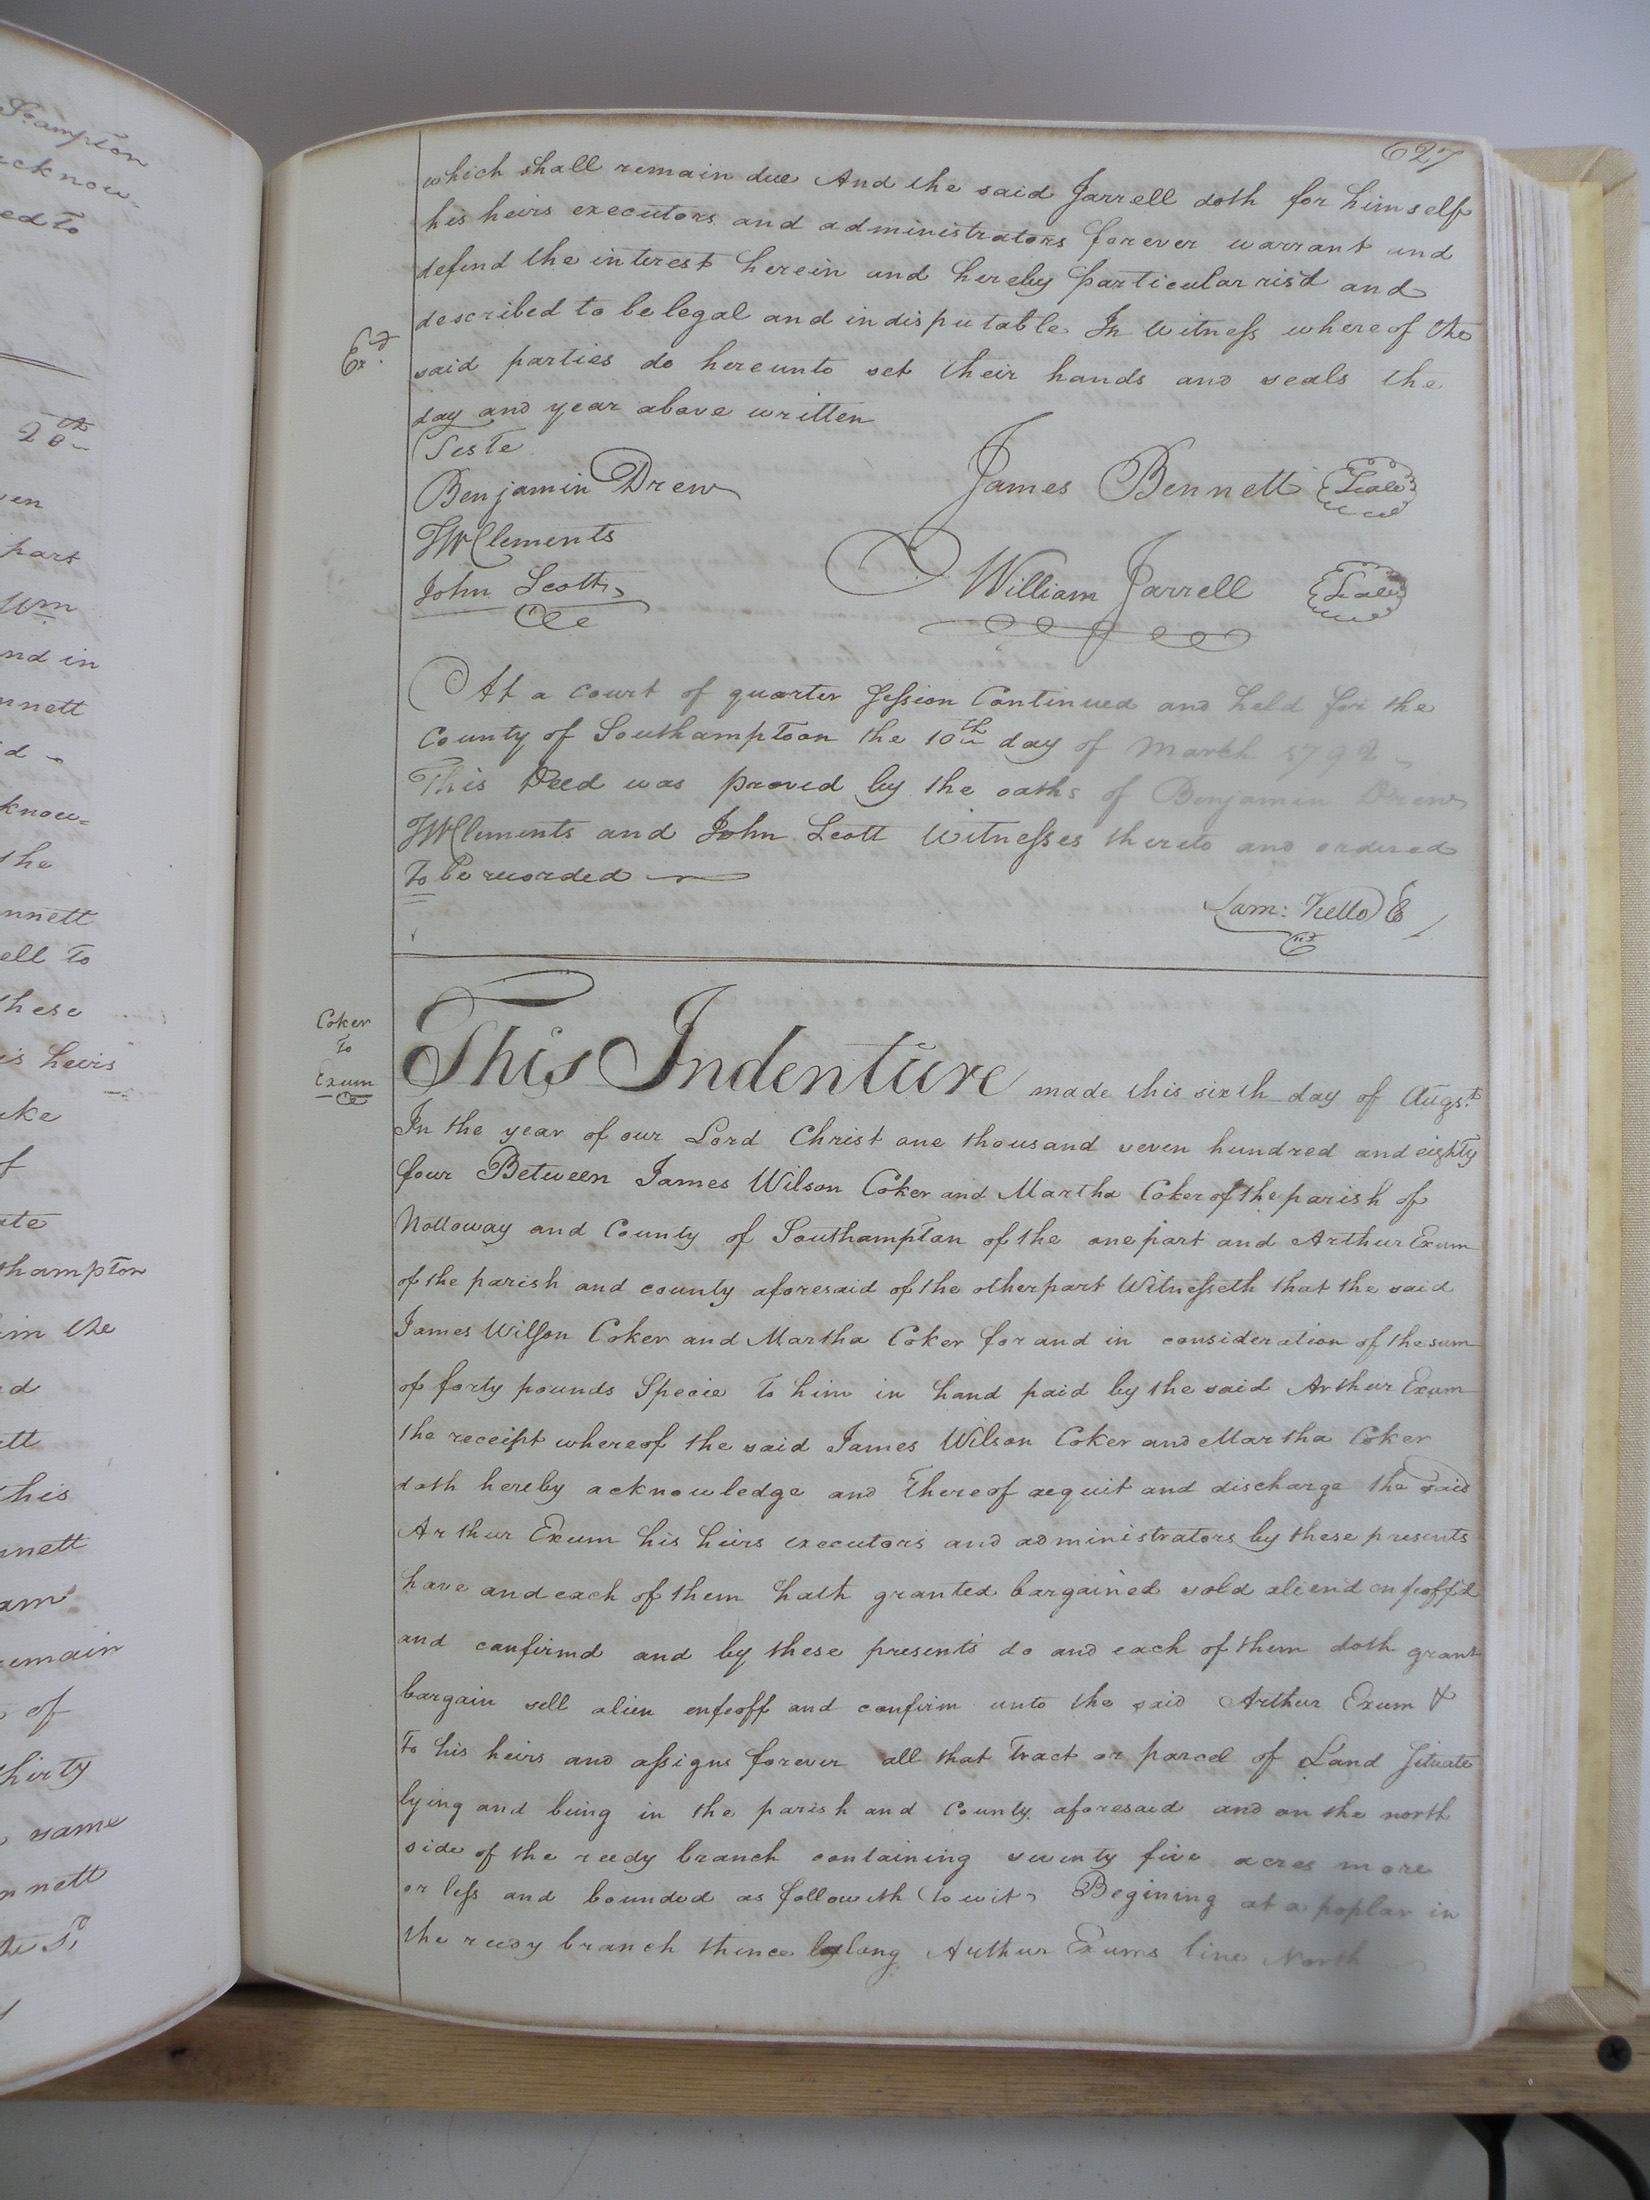 Sºampton
acknow-
ed To
28th
en
part
Wm
nd in
nnett
d
know=
the
nnett
ell To
these
is heirs
ake
of
ate
thampton
im the
d
ett
this
nnett
am
remain
of
thirty
same
nnett
627
which shall remain due And the said Jarrell doth for himself
his heirs executors and administrators forever warrant and
defend the interest herein and hereby particularris'd and
described to be legal and indisputable In Witness whereof the
Exd
said parties do hereunto set their hands and seals the
day and year above written
Teste
Benjamin Drew
James Bennett Seal
JWClements
John Scott
William Jarrell Seal
At a Court of quarter Session Continued and held for the
County of Southamptoon the 10th day of March 1792
This Deed was proved by the oaths of Benjamin Drew
JWClements and John Scott Witnesses thereto and ordered
To be recorded
Sam: Kello C
Coker
To
Exum
This Indenture made this sixth day of Augst
In the year of our Lord Christ one thousand seven hundred and eighty
four Between James Wilson Coker and Martha Coker of the parish of
Nottoway and County of Southampton of the one part and Arthur Exum
of the parish and county aforesaid of the other part Witnesseth that the said
James Wilson Coker and Martha Coker for and in consideration of the sum
of forty pounds Specie To him in hand paid by the said Arthur Exum
the receipt whereof the said James Wilson Coker and Martha Coker
doth hereby acknowledge and thereof acquit and discharge the said
Arthur Exum his heirs executors and administrators by these presents
have and each of them hath granted bargained sold aliend enfeoff'd
and confirmd and by these presents do and each of them doth grant
bargain sell alien enfeoff and confirm unto the said Arthur Exum &
To his heirs and assigns forever all that Tract or parcel of Land Situate
lying and being in the parish and County aforesaid and on the north
side of the reedy branch containing seventy five acres more
or less and bounded as followeth (to wit) Begining at a poplar in
the reedy branch thence along Arthur Exums line North